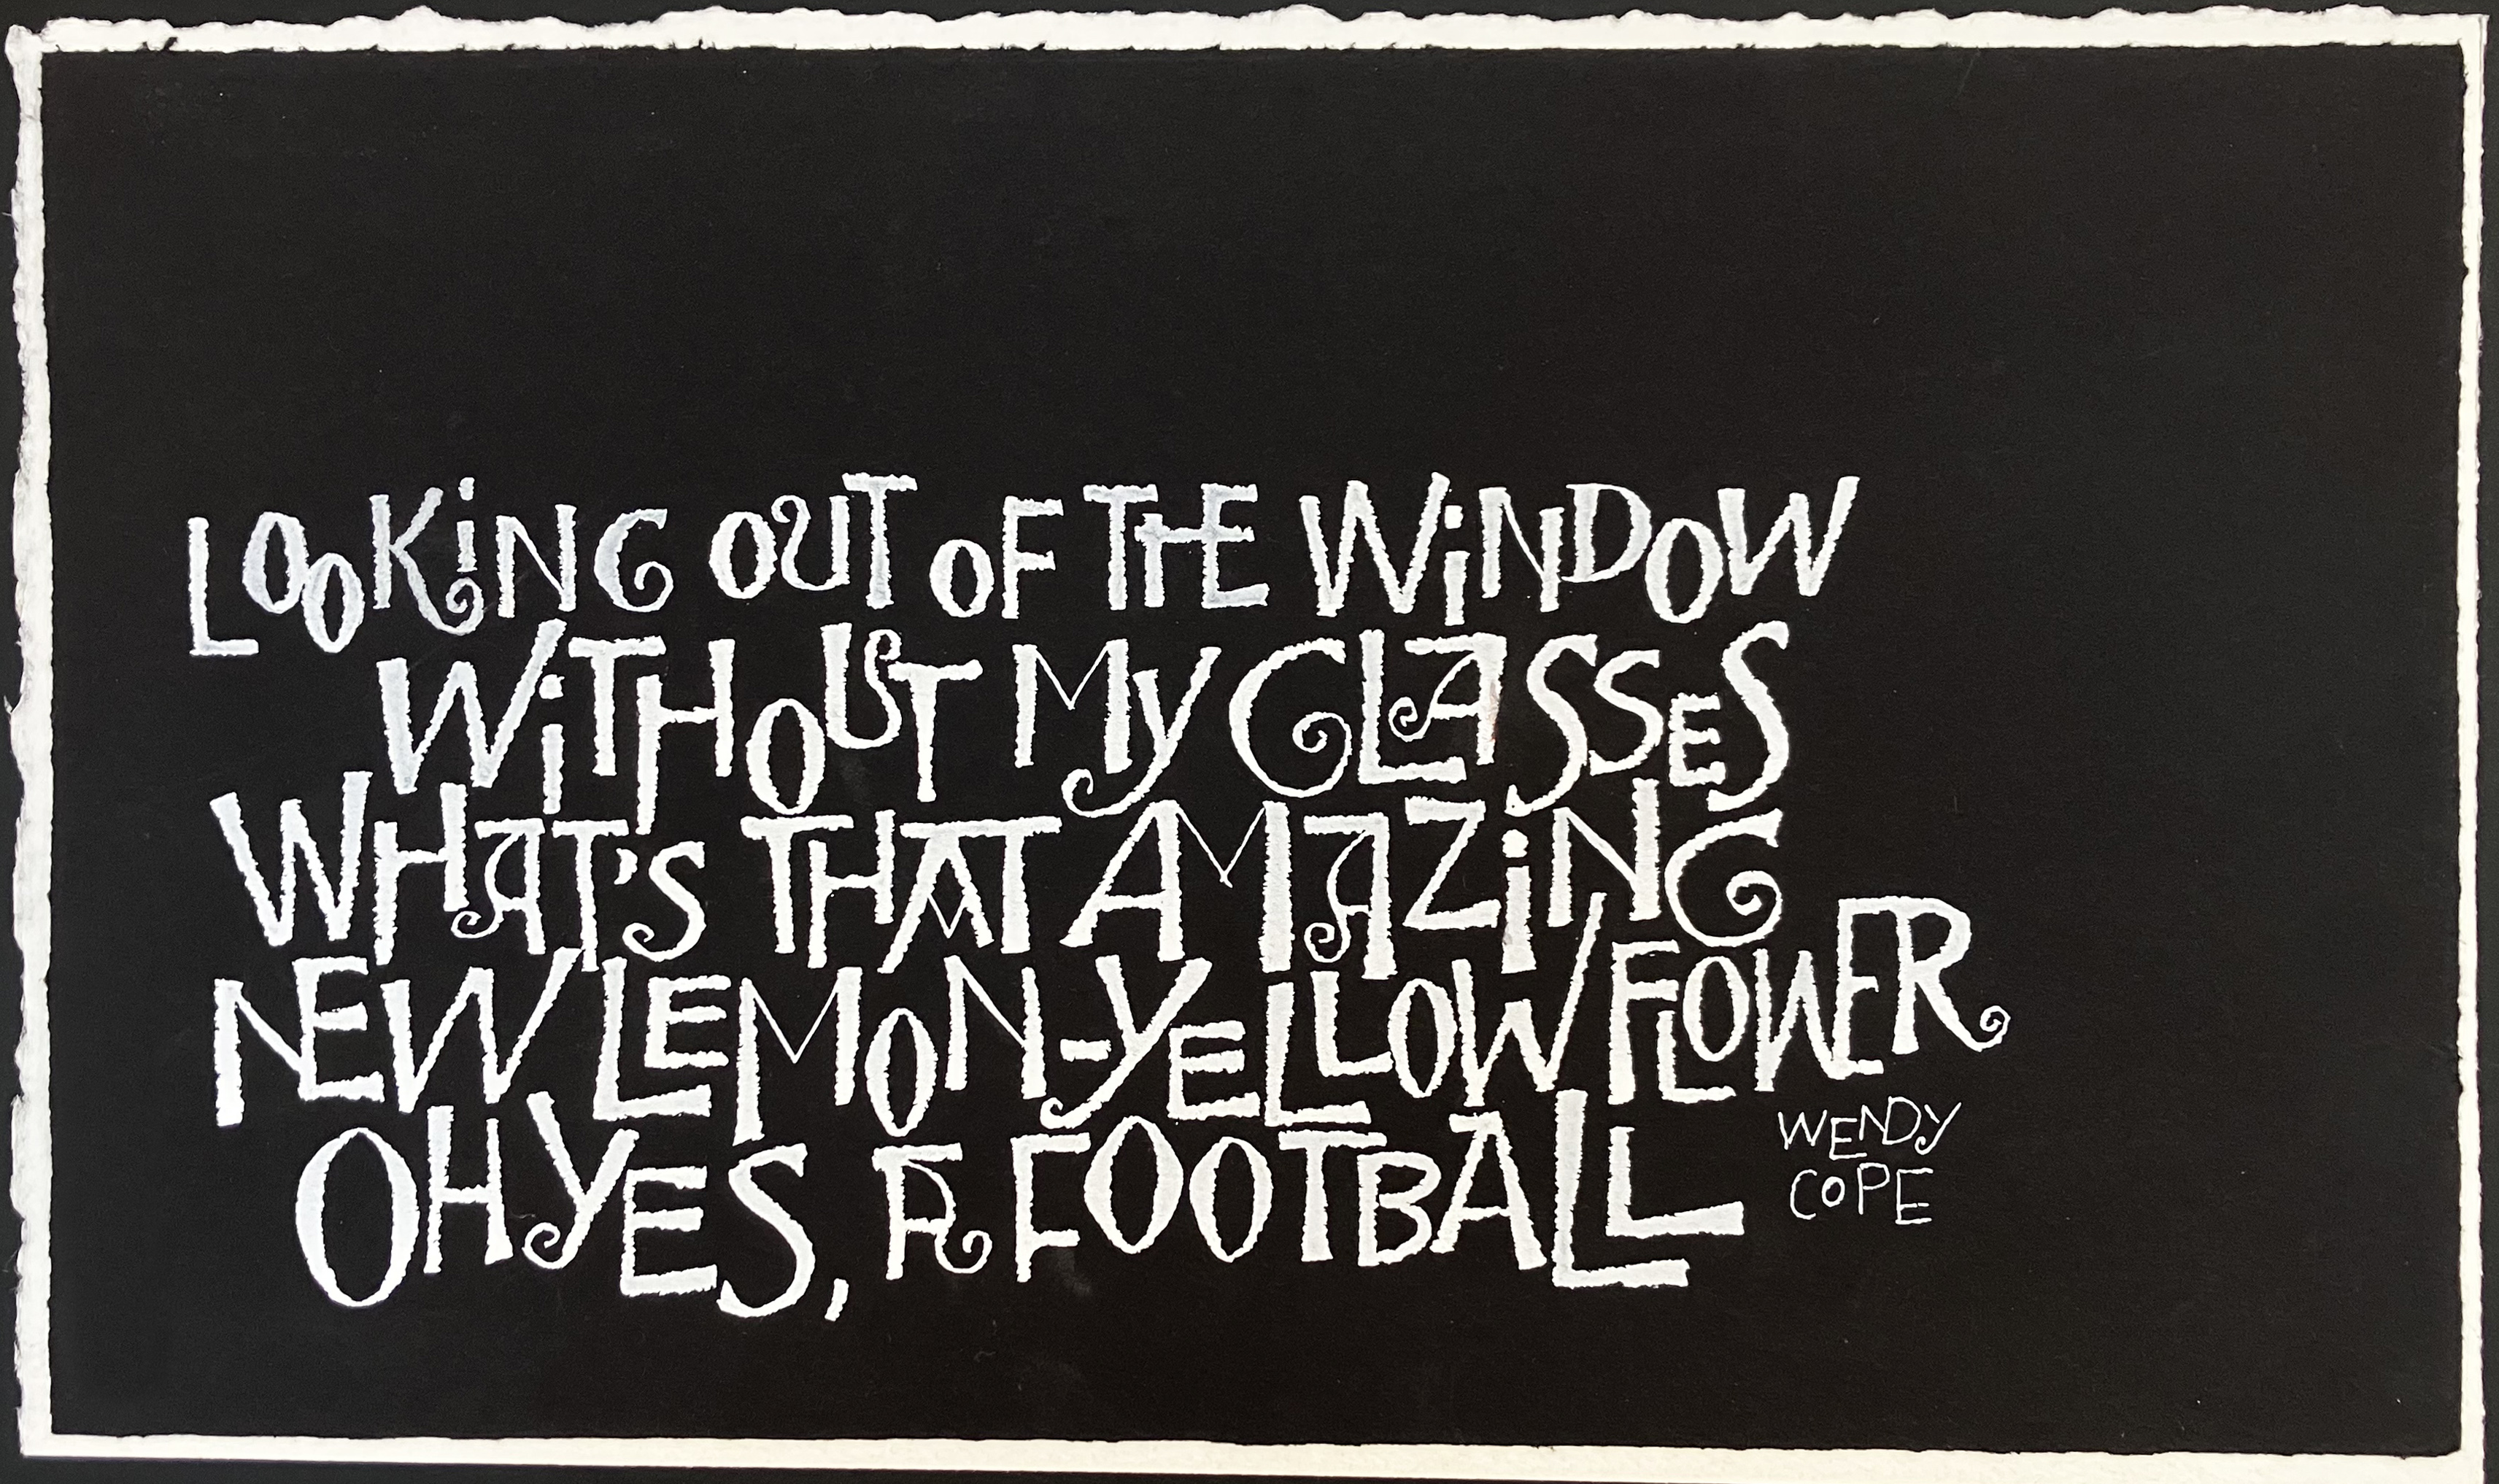 LOOKiNG OUT OF THE WiNDOW
WiTHOUT MY GLASSES
WHAT'S THAT AMAZiNG
NEW LEMON-YELLOW FLOWER
OH YES, A FOOTBALL
WENDY
COPE